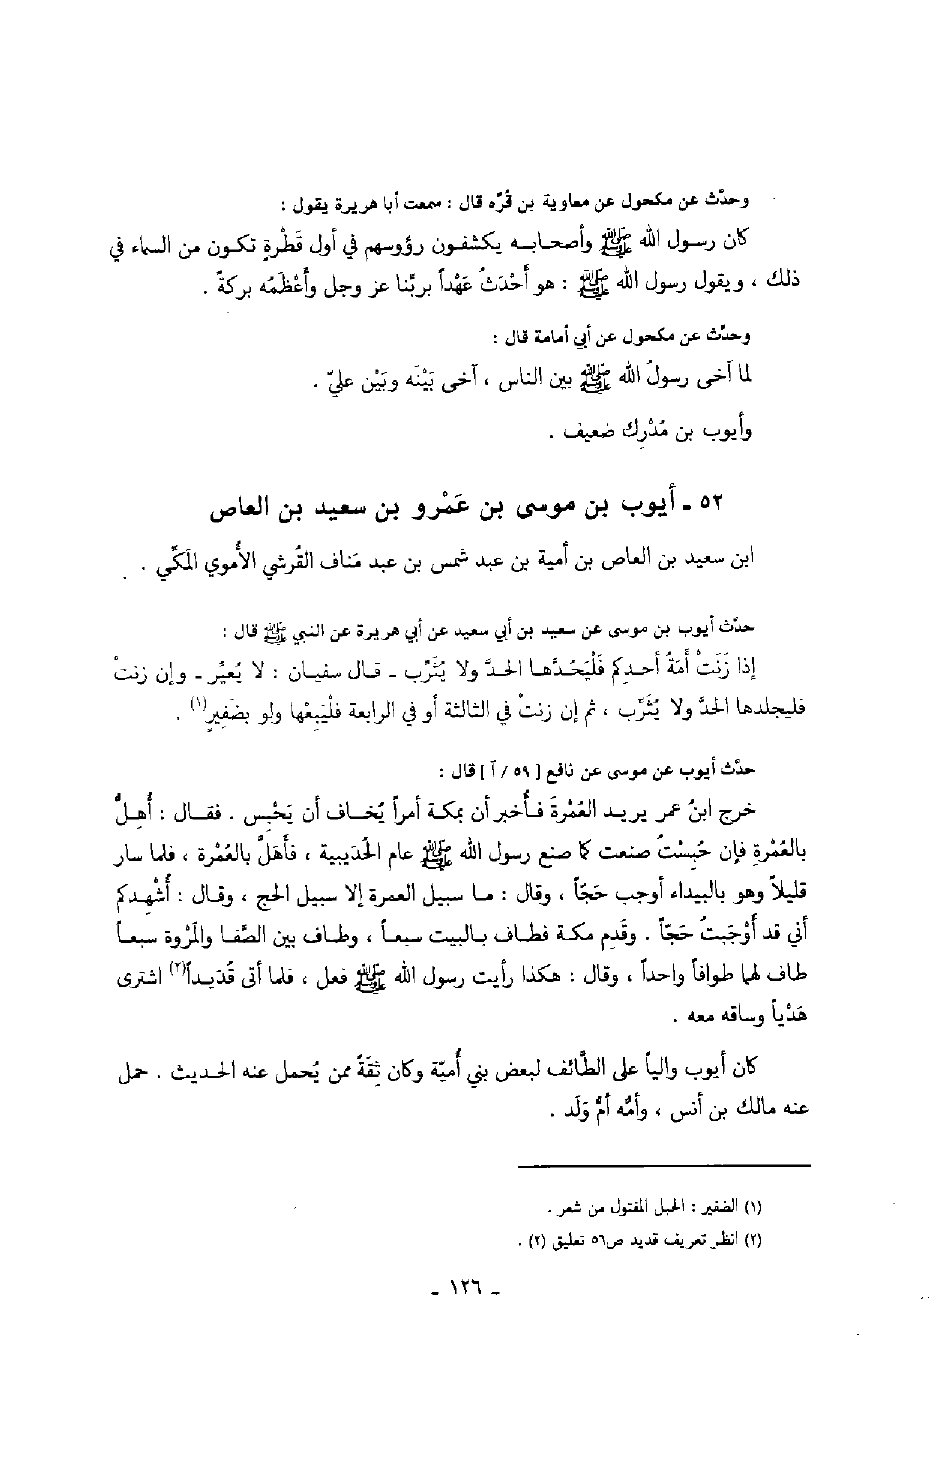 وحدّث عن مكحول عن معاوية بن قُرّه قال : سمعت أبا هريرة يقول :
كان رسول الله ﷺ وأصحابه يكشفون رؤوسهم في أول قَطْرةٍ تكون من السماء في
ذلك ، ويقول رسول الله ﷺ : هو أَحْدَثُ عَهْداً بربّنا عز وجل وأَعْظَمُه بركةً .
وحدّث عن مكحول عن أبي أمامة قال :
لما آخى رسولُ الله ﷺ بين الناس ، آخى بَيْنَه وبَيْن عليّ .
وأيوب بن مُدْرِك ضعيف .
٥٢ ـ أيوب بن موسى بن عَمْرو بن سعيد بن العاص
ابن سعيد بن العاص بن أمية بن عبد شمس بن عبد مَناف القُرشي الأموي المكّي .
حدّث أيوب بن موسى عن سعيد بن أبي سعيد عن أبي هريرة عن النبي ﷺ قال :
إذا زَنَتْ أَمَةُ أحدِكم فَلْيَحُدَّها الحدَّ ولا يُثَرِّب ـ قال سفيان : لا يُعيِّر ـ وإن زنتْ
فليجلدها الحدَّ ولا يُثَرِّب ، ثم إن زنتْ في الثالثة أو في الرابعة فلْيَبِعْها ولو بضَفيرٍ(١) .
حدّث أيوب عن موسى عن نافع [ ٥٩ / آ ] قال :
خرج ابنُ عمر يريد العُمْرةَ فأُخبر أن بمكة أمراً يُخاف أن يَحْبِس . فقال : أُهِلُّ
بالعُمْرةِ فإن حُبِسْتُ صنعت كما صنع رسول الله ﷺ عام الحُدَيبية ، فأَهَلَّ بالعُمْرة ، فلما سار
قليلاً وهو بالبيداء أوجب حَجّاً ، وقال : ما سبيل العمرة إلا سبيل الحج ، وقال : أُشْهِدكم
أني قد أَوْجَبتُ حَجّاً . وقَدِم مكة فطاف بالبيت سبعاً ، وطاف بين الصَّفا والمَرْوة سبعاً
طاف لهما طوافاً واحداً ، وقال : هكذا رأيت رسول الله ﷺ فعل ، فلما أتى قُدَيداً(٢) اشترى
هَدْياً وساقه معه .
كان أيوب والياً على الطَّائف لبعض بني أُميّة وكان ثِقَةً ممن يُحمل عنه الحديث . حمل
عنه مالك بن أنس ، وأمُّه أمُّ وَلَد .
(١) الضفير : الحبل المفتول من شعر .
(٢) انظر تعريف قديد ص٥٦ تعليق (٢) .
ـ ١٢٦ ـ